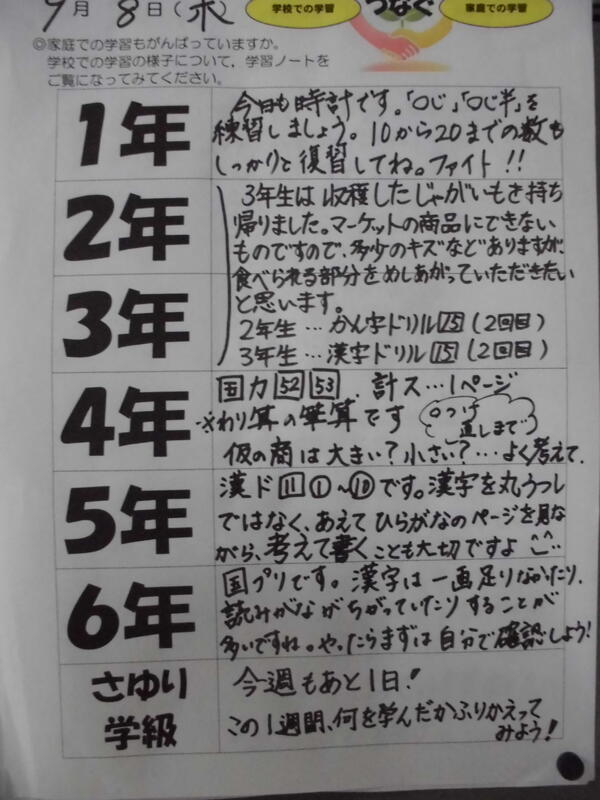 9月 8日(水)
学校での学習
つなぐ
家庭での学習
◎家庭での学習もがんばっていますか。
学校での学習の様子について,学習ノートを
ご覧になってみてください。
1年
今日も時計です。「○じ」「○じ半」を
練習しましょう。10から20までの数も
しっかりと復習してね。ファイト!!
2年
3年
3年生は収穫したじゃがいもを持ち
帰りました。マーケットの商品にできない
ものですので、多少のキズなどありますが、
食べられる部分をめしあがっていただきたい
と思います。
2年生…かん字ドリル15(2回目)
3年生…漢字ドリル15(2回目)
4年
国力52 53 . 計ス…1ページ
わり算の筆算です
○つけ
直しまで
仮の商は大きい?小さい?…よく考えて.
5年
漢ド11①〜⑩です。漢字を丸うつし
ではなく、あえてひらがなのページを見な
がら、考えて書くことも大切ですよ
6年
国プリです。漢字は一画足りなかったり、
読みがながちがっていたりすることが
多いですね。やったらまずは自分で確認しよう!
さゆり
学級
今週もあと1日!
この1週間、何を学んだかふりかえって
みよう!